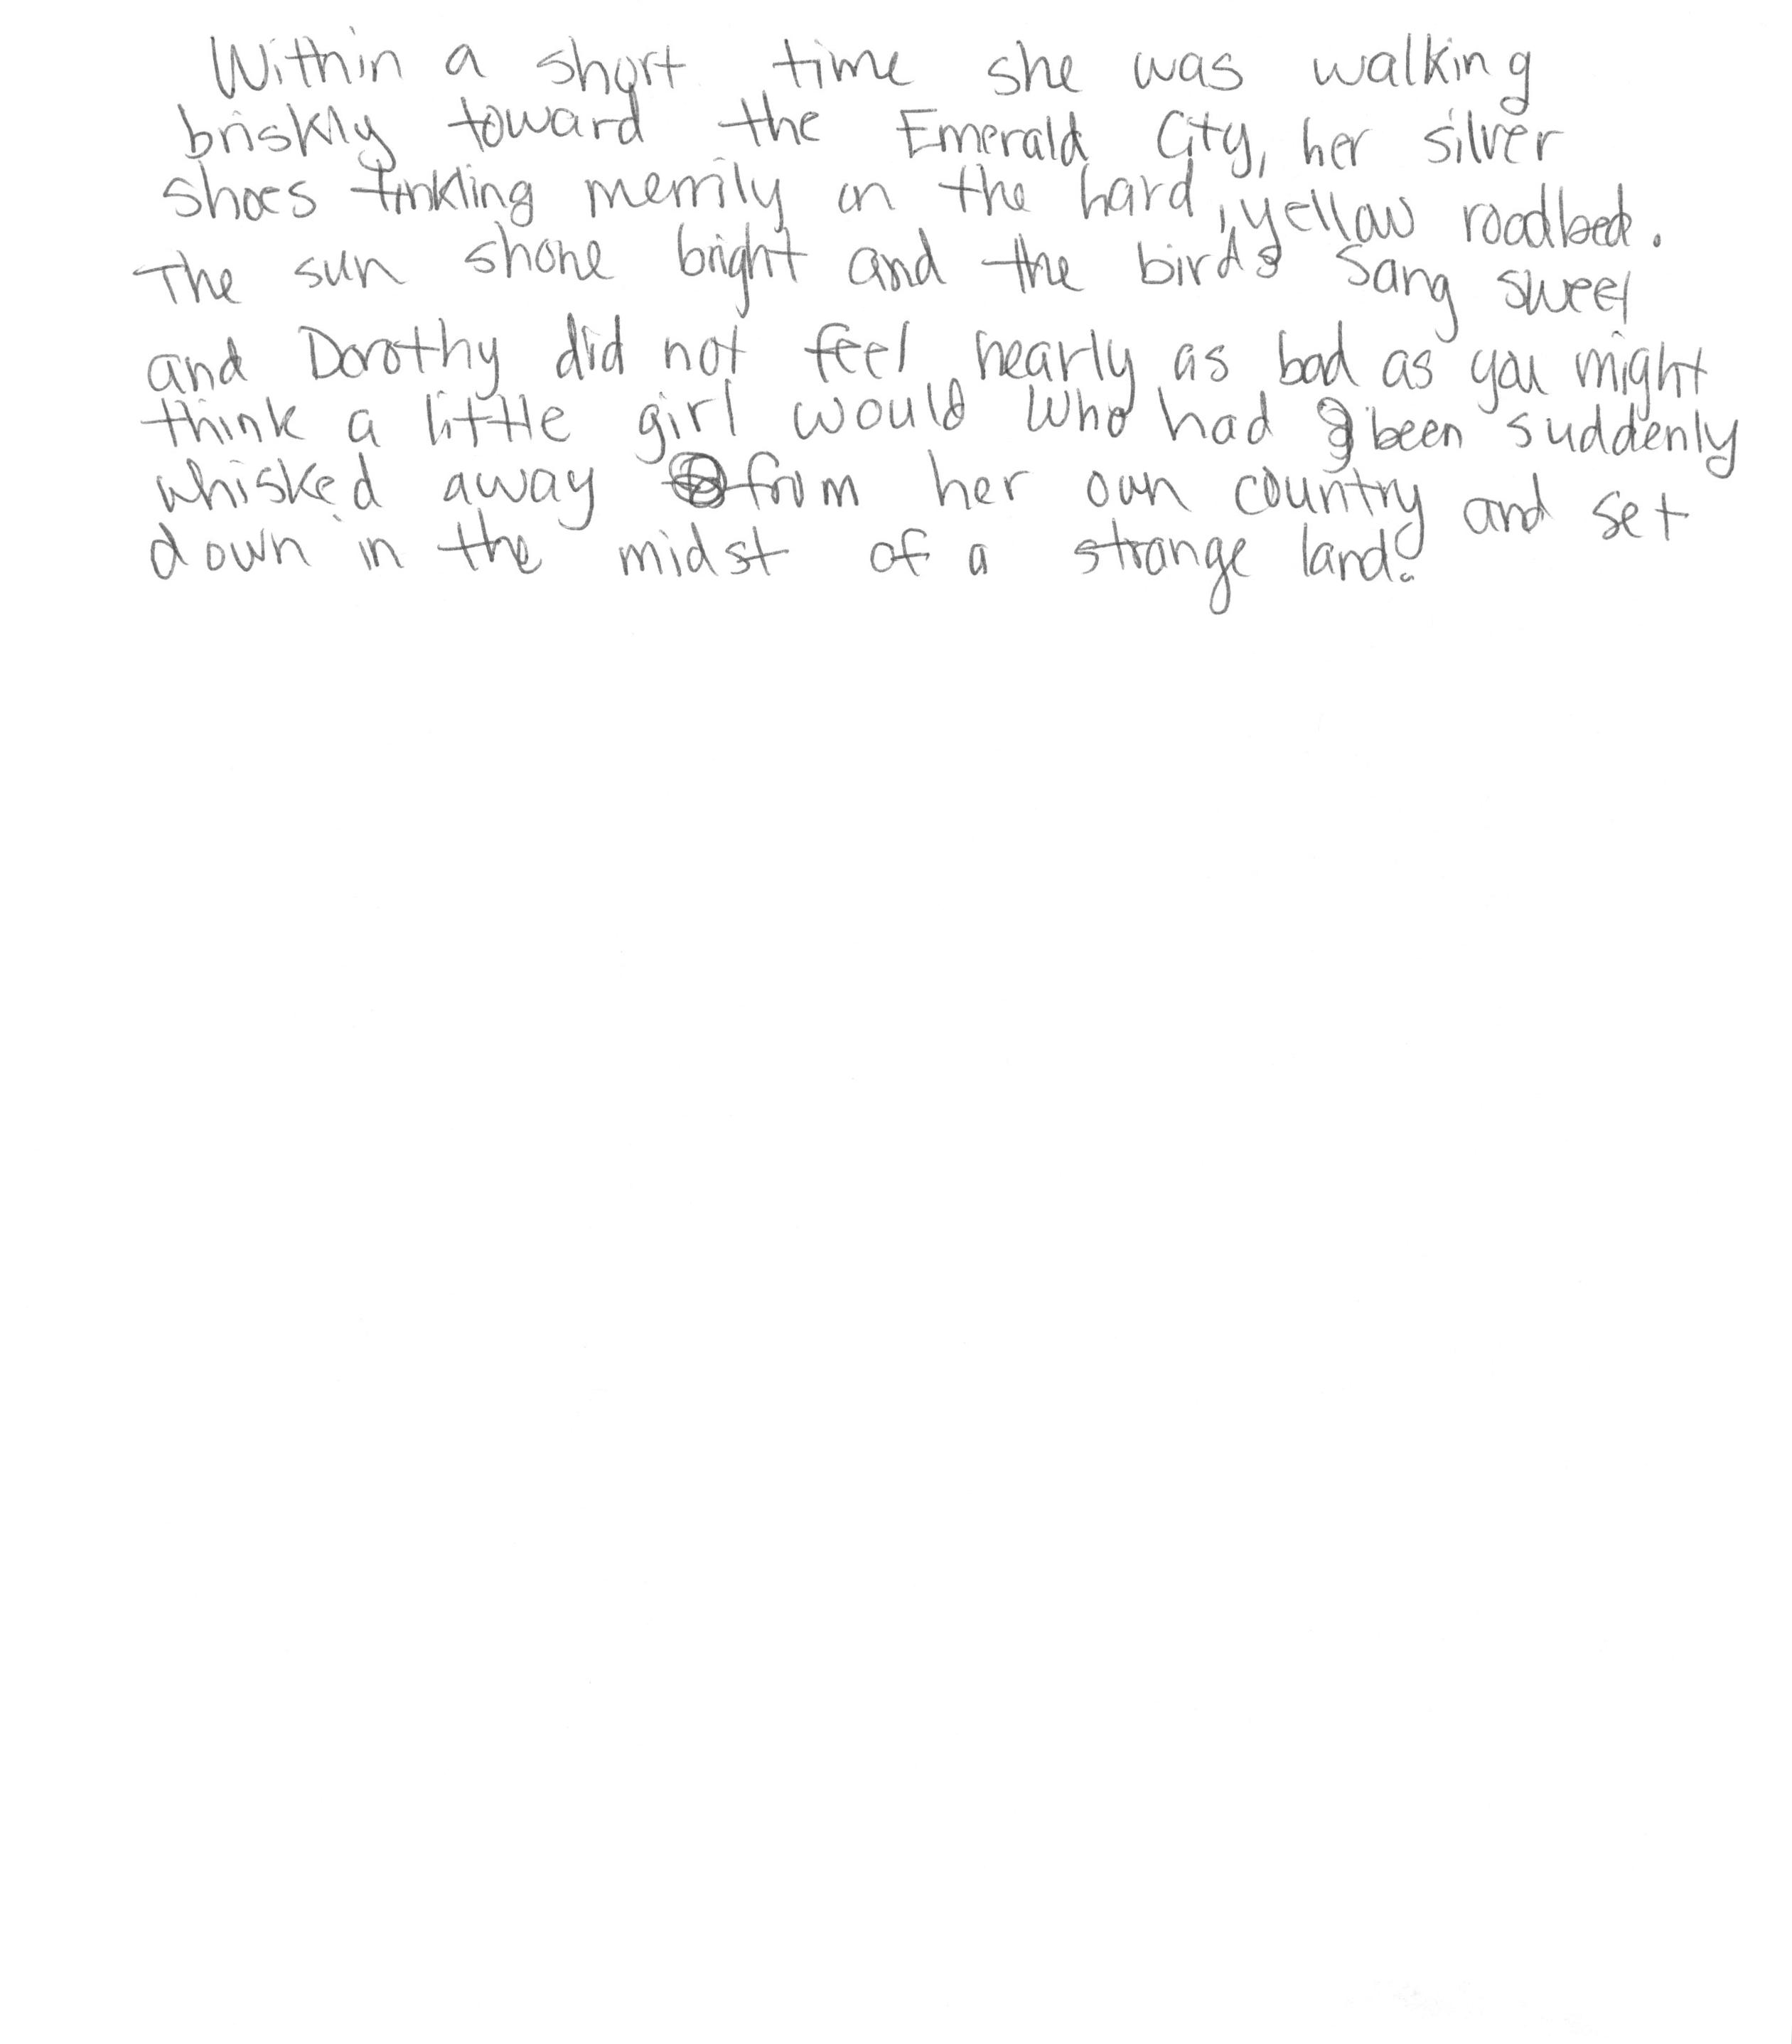 Within a short time she was walking
briskly toward the Emerald City, her silver
shoes tinkling merrily on the hard, yellow roadbed.
The sun shone bright and the birds sang sweet
and Dorothy did not feel nearly as bad as you might
think a little girl would who had been suddenly
whisked away from her own country and set
down in the midst of a strange land.